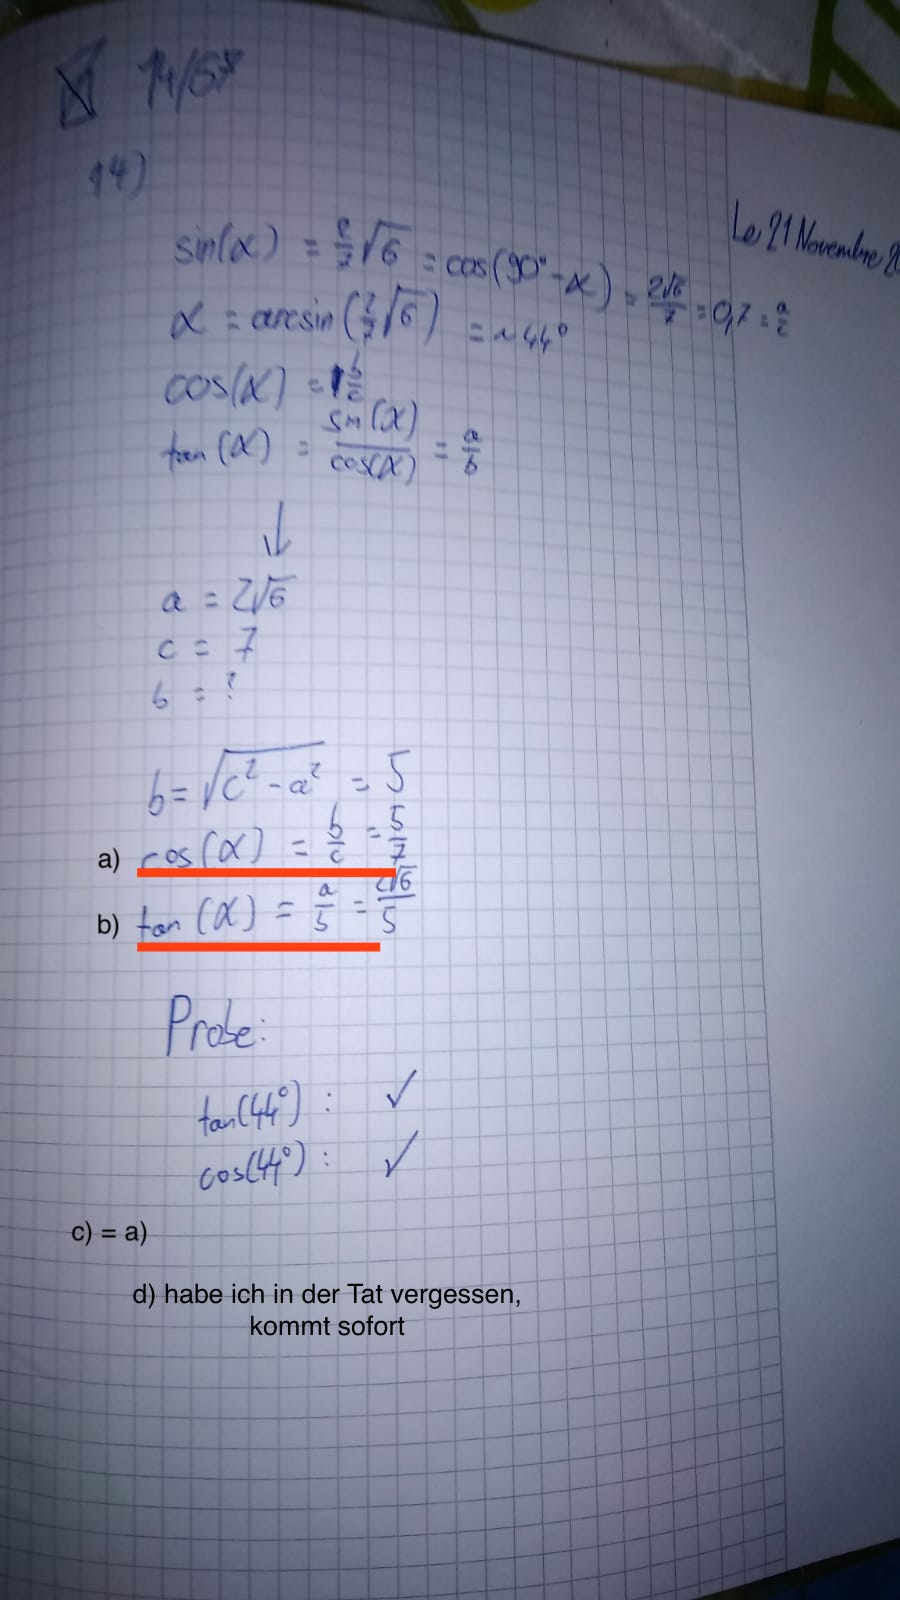 14/67
14)
Le 21 Novembre
sin(α) = 2/7 √6 = cos(90° - α) = 2√6/7 = 0,7 = a/c
α = arcsin(2/7 √6) = ~44°
cos(α) = b/c
tan(α) = sin(α)/cos(α) = a/b
↓
a = 2√6
c = 7
b = ?
b = √(c² - a²) = 5
a) cos(α) = b/c = 5/7
b) tan(α) = a/b = 2√6/5
Probe:
tan(44°) : ✓
cos(44°) : ✓
c) = a)
d) habe ich in der Tat vergessen,
kommt sofort